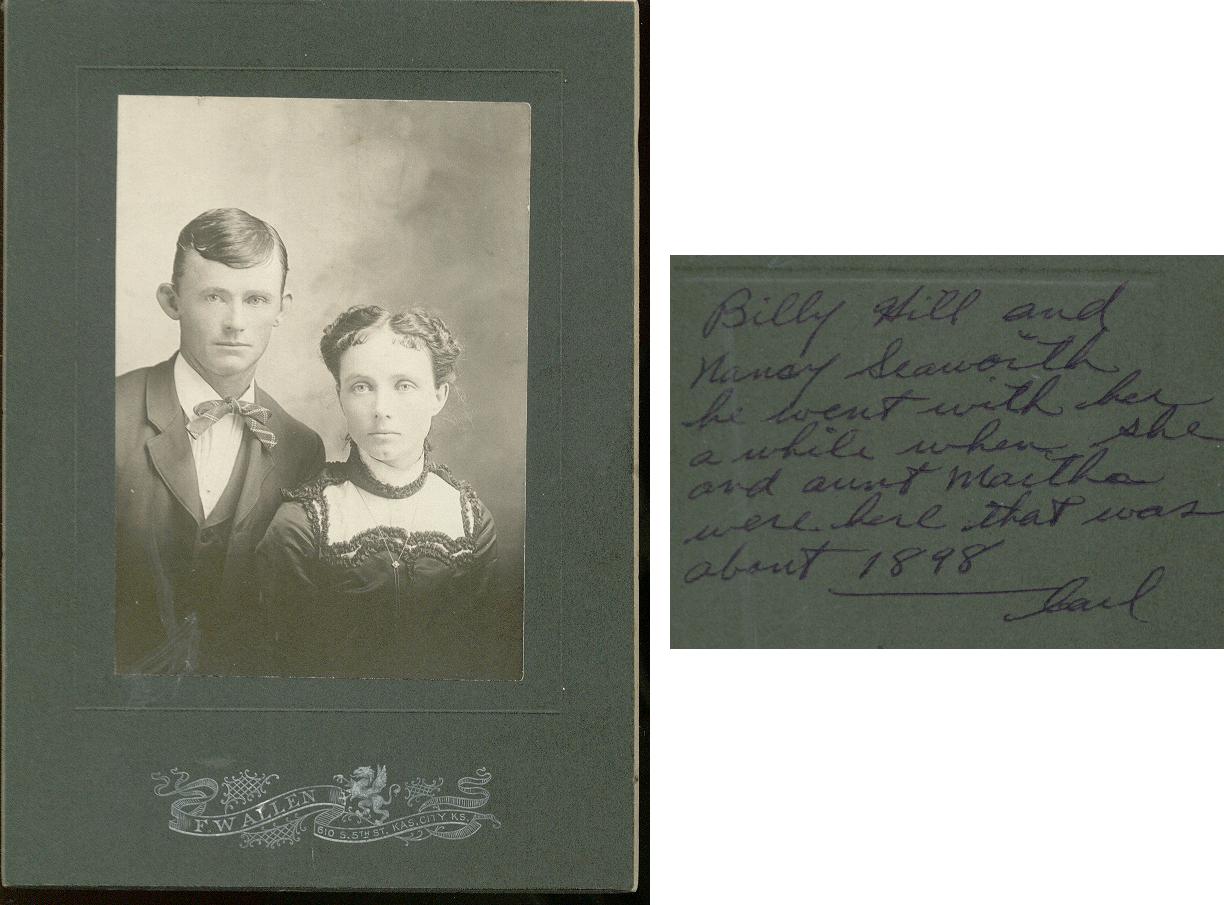 F. W. ALLEN
610 S. 5TH ST. KAS. CITY KS.
Billy Hill and
Nancy Seaworth
he went with her
a while when she
and aunt Martha
were here that was
about 1898
Carl